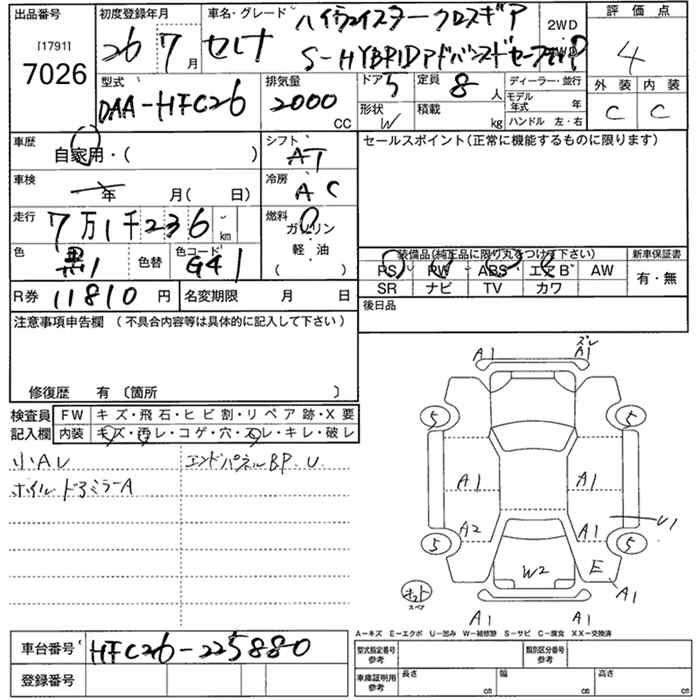 出品番号 初度登録年月 車名・グレード ハイウェイスター クロスギア 2WD 評価点
[1791] 26 7月 セレナ S-HYBRID アドバンスドセーフティ 4
7026
型式 排気量 ドア 5 定員 8人 ディーラー・並行 外装 内装
DAA-HFC26 2000 CC 形状 W 積載 kg モデル年式 年 C C
ハンドル 左・右
車歴 自家用・( ) シフト AT セールスポイント(正常に機能するものに限ります)
車検 年 月( 日) 冷房 AC
走行 7万1千236 km 燃料 ガソリン
軽油
( )
色 黒 色替 色コード G41 装備品(純正品に限り丸をつけて下さい) 新車保証書
PS PW ABS エアB AW 有・無
SR ナビ TV カワ
R券 11810 円 名変期限 月 日 後日品
注意事項申告欄 (不具合内容等は具体的に記入して下さい)
修復歴 有 〔箇所 〕
検査員 FW キズ・飛石・ヒビ割・リペア跡・X要
記入欄 内装 キズ・汚レ・コゲ・穴・スレ・キレ・破レ
小AU エンドパネルBP.U
ホイルドアミラーA
ズレ
A1 A1
5 5
A1 A1
A2 A1 U1
5 5
W2 E
A1
スペア
A1 A1
A−キズ E−エクボ U−凹み W−補修跡 S−サビ C−腐食 XX−交換済
車台番号 HFC26-225880 型式指定番号 参考 類別区分番号 参考
登録番号 車庫証明用 参考 長さ cm 幅 cm 高さ cm